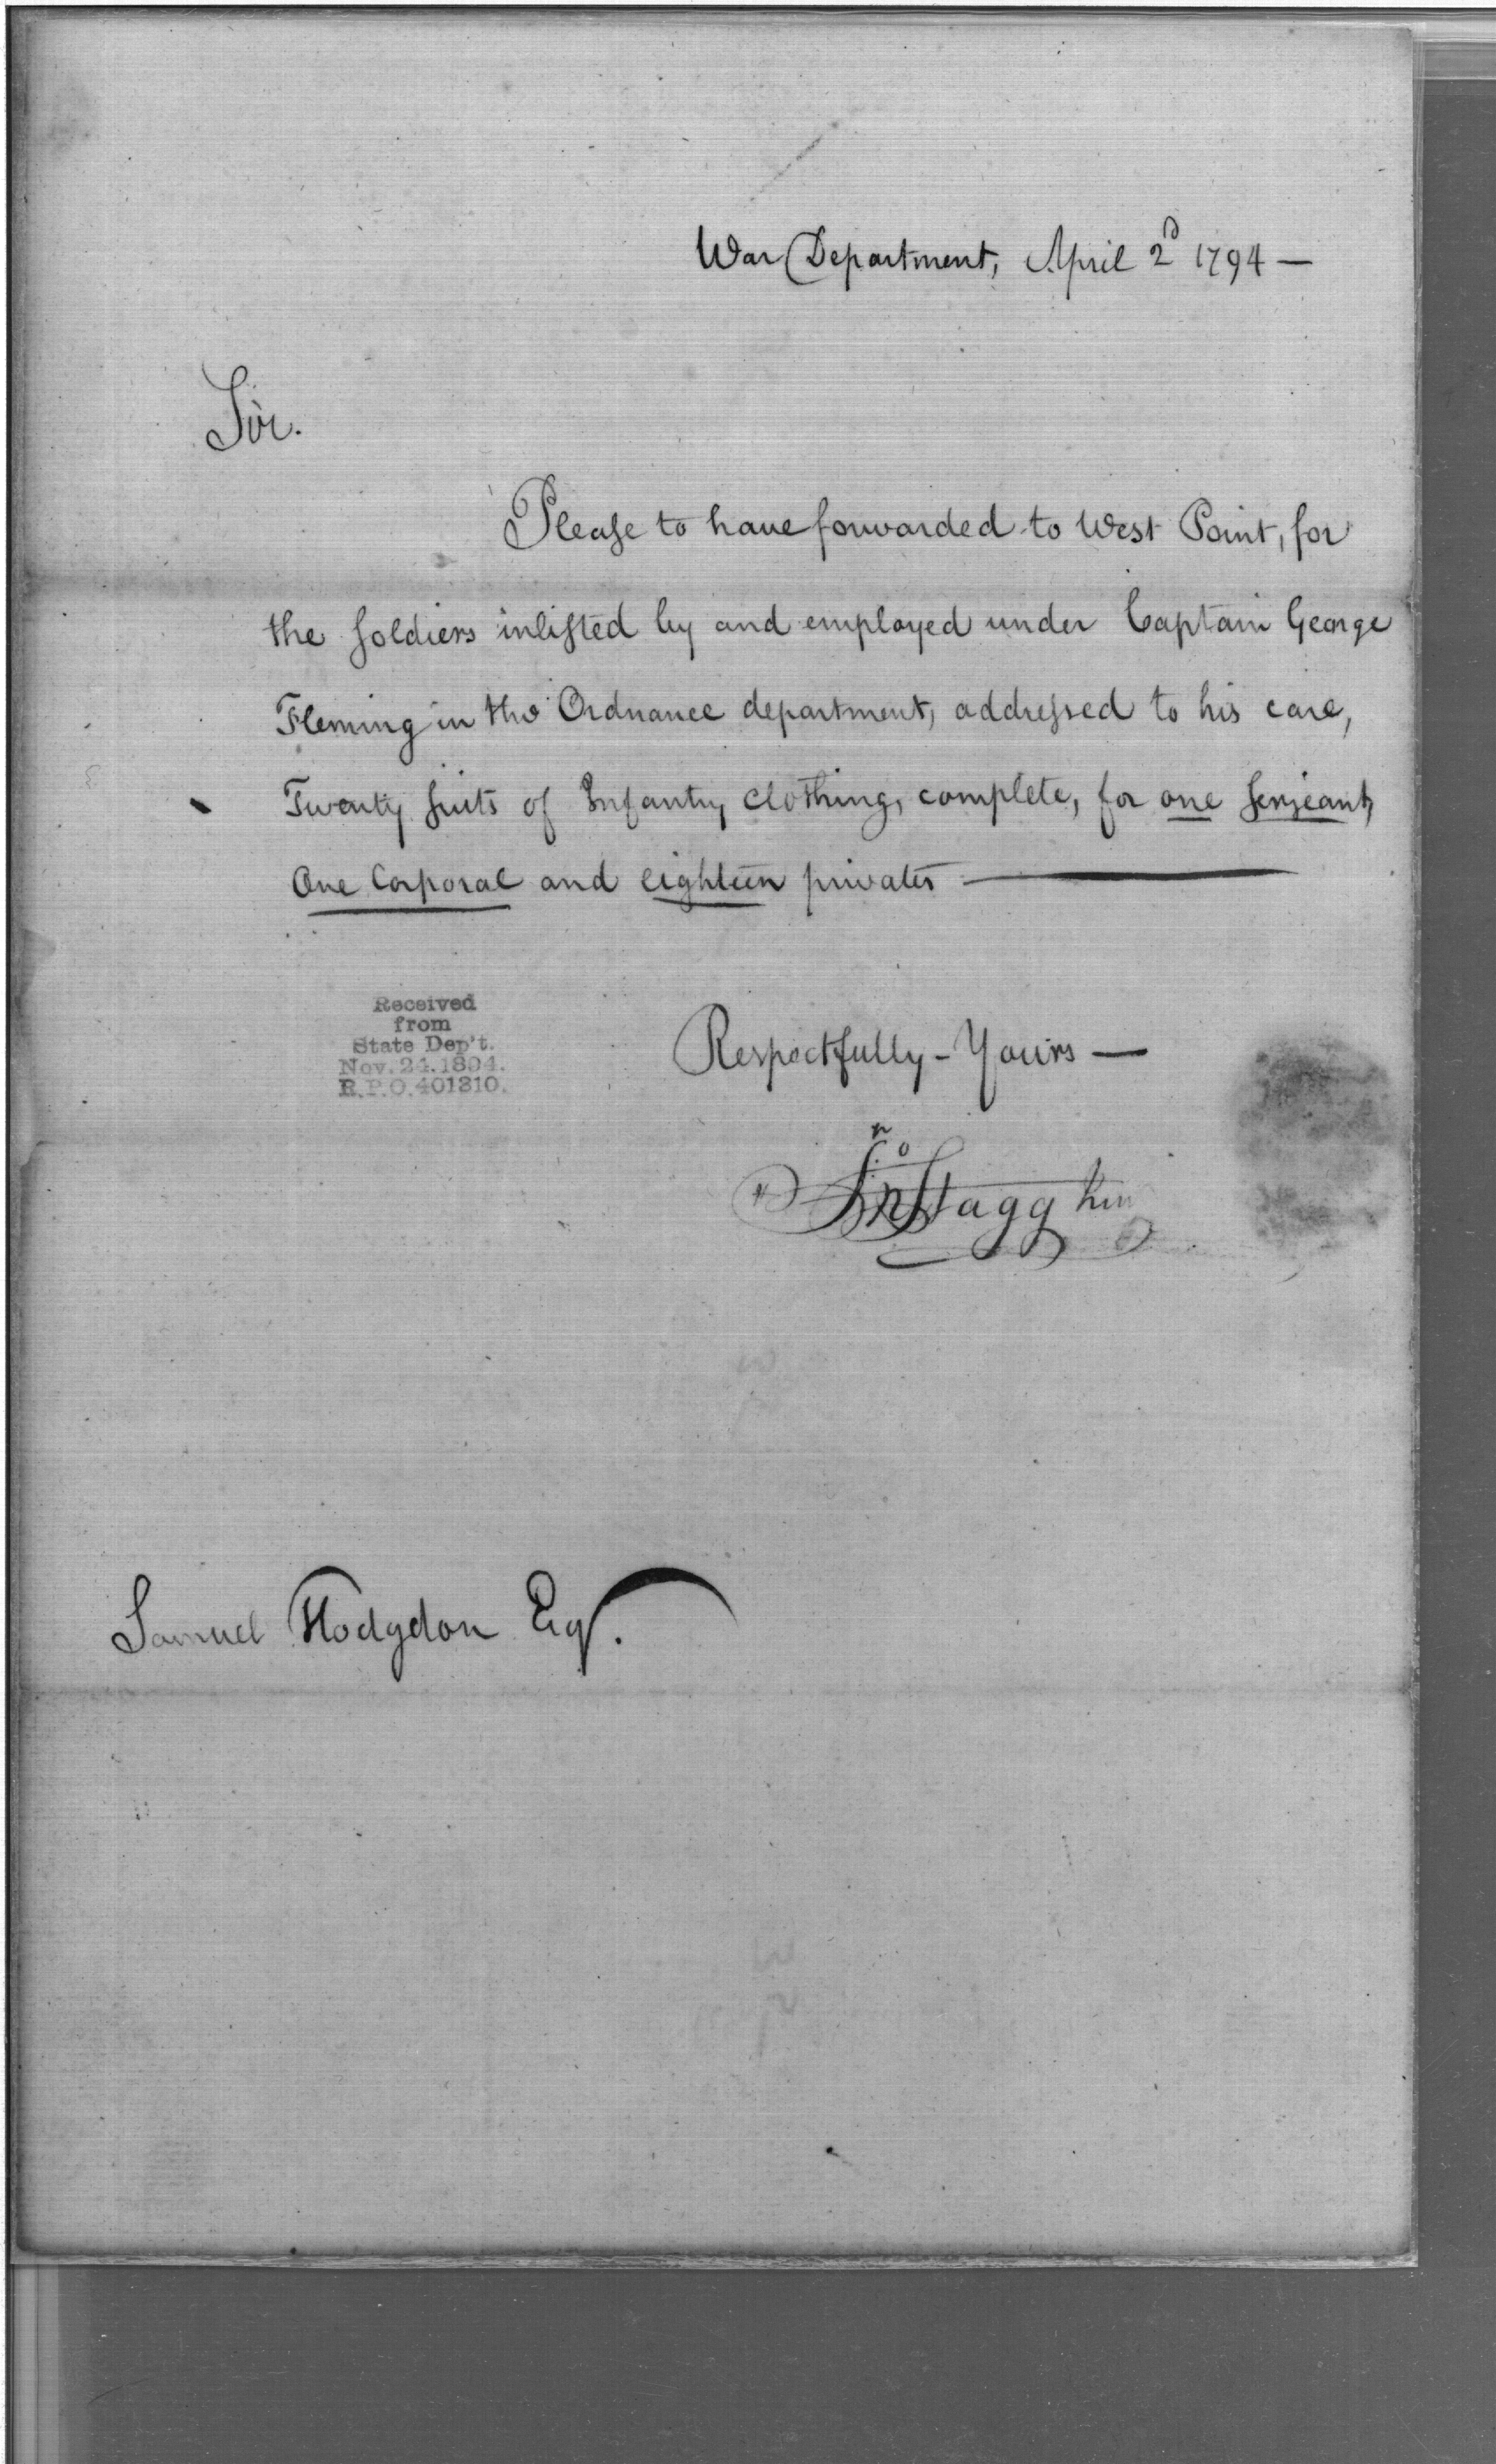 War Department, April 2d 1794 —
Sir.
Please to have forwarded to West Point, for
the soldiers inlisted by and employed under Captain George
Fleming in the Ordnance department, addressed to his care,
Twenty suits of Infantry Clothing, complete, for one serjeant,
One Corporal and eighteen privates —
Received
from
State Dep't.
Nov. 24. 1894.
R.P.O. 401310.
Respectfully - Yours —
Jno Stagg Junr
Samuel Hodgdon Esqr.